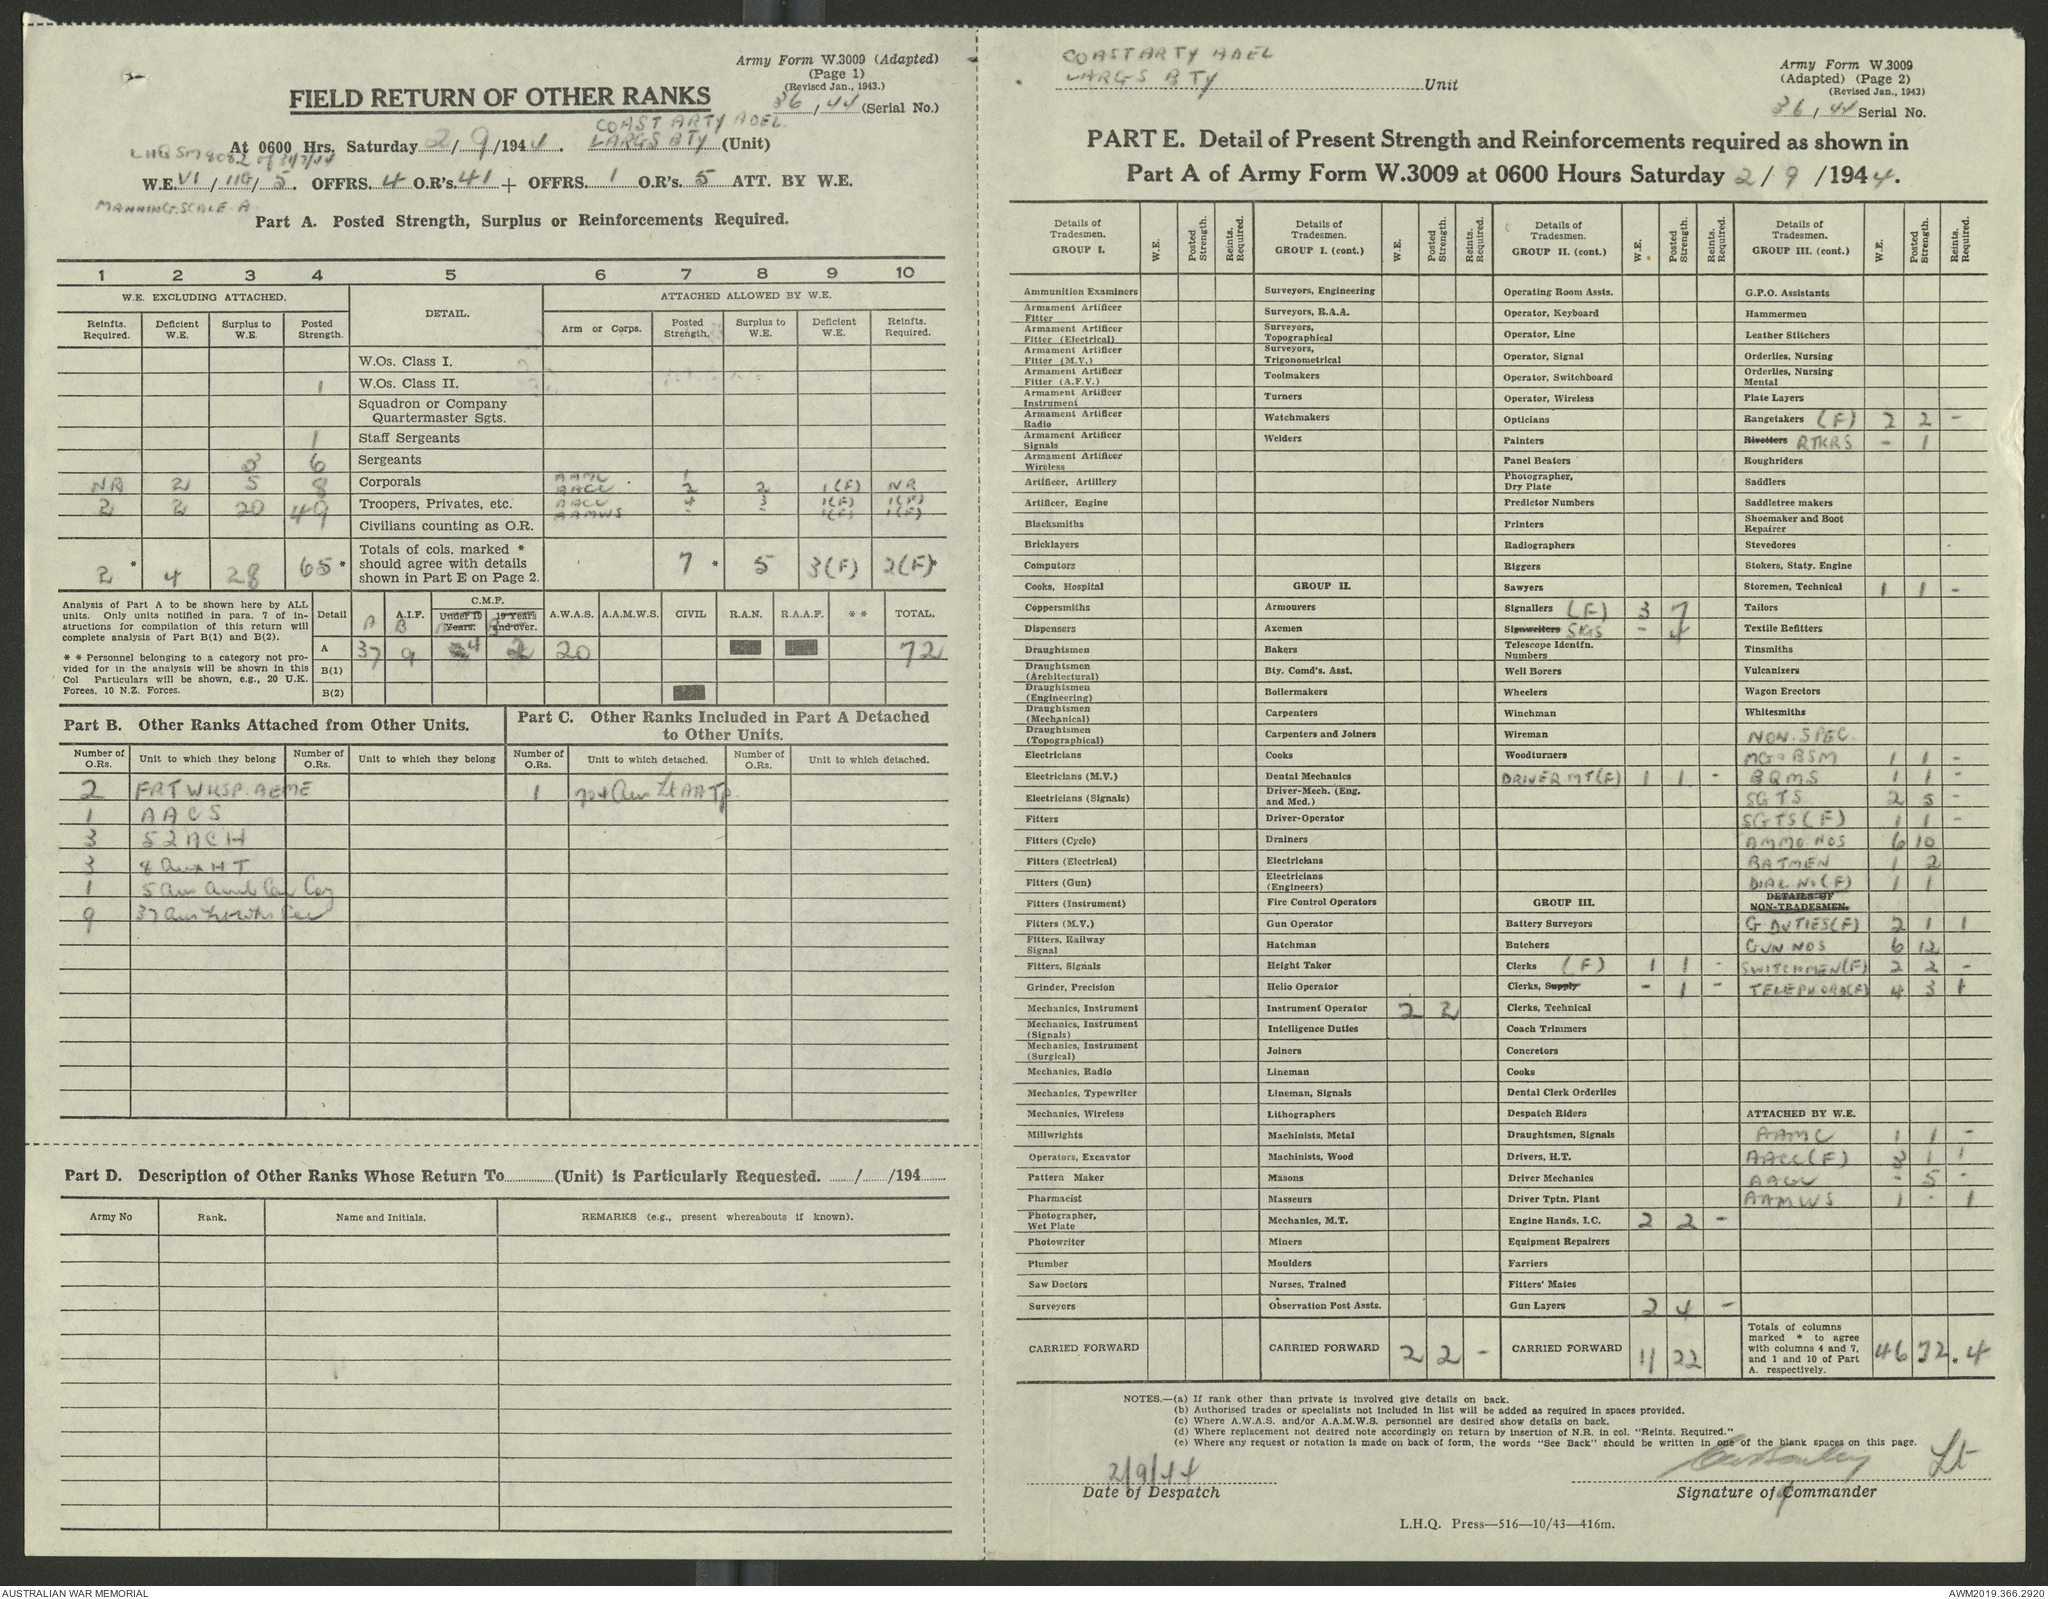 Army Form W.3009 (Adapted)
(Page 1)
(Revised Jan., 1943.)
36 / 44 (Serial No.)
FIELD RETURN OF OTHER RANKS
COAST ARTY ADEL.
At 0600 Hrs. Saturday 2/9/1944. LARGS BTY (Unit)
LHQ SM 8082 of 31/7/44
W.E. VI / 11G / 5. OFFRS. 4 O.R's. 41 + OFFRS. 1 O.R's. 5 ATT. BY W.E.
MANNING SCALE A
Part A. Posted Strength, Surplus or Reinforcements Required.
1 2 3 4 5 6 7 8 9 10
W.E. EXCLUDING ATTACHED. DETAIL. ATTACHED ALLOWED BY W.E.
Reinfts. Required. Deficient W.E. Surplus to W.E. Posted Strength. Arm or Corps. Posted Strength. Surplus to W.E. Deficient W.E. Reinfts. Required.
W.Os. Class I.
1 W.Os. Class II.
Squadron or Company Quartermaster Sgts.
1 Staff Sergeants
3 6 Sergeants
NR 2 5 8 Corporals AAMC 1
AACC 2 2 1(F) NR
2 2 20 49 Troopers, Privates, etc. AACC 4 3 1(F) 1(F)
AAMWS - - 1(F) 1(F)
Civilians counting as O.R.
2 * 4 28 65 * Totals of cols. marked * should agree with details shown in Part E on Page 2. 7 * 5 3(F) 2(F)*
Analysis of Part A to be shown here by ALL units. Only units notified in para. 7 of instructions for compilation of this return will complete analysis of Part B(1) and B(2).
** Personnel belonging to a category not provided for in the analysis will be shown in this Col. Particulars will be shown, e.g., 20 U.K. Forces, 10 N.Z. Forces.
Detail A A.I.F. B C.M.F. Under 19 Years. 19 Years and over. A.W.A.S. A.A.M.W.S. CIVIL R.A.N. R.A.A.F. ** TOTAL.
A 37 9 4 2 20 72
B(1)
B(2)
Part B. Other Ranks Attached from Other Units.
Number of O.Rs. Unit to which they belong Number of O.Rs. Unit to which they belong
2 FRT WKSP. AEME
1 AACS
3 52 ACH
3 8 Aust H T
1 5 Aus Amb Car Coy
9
Part C. Other Ranks Included in Part A Detached to Other Units.
Number of O.Rs. Unit to which detached. Number of O.Rs. Unit to which detached.
1 Aus Lt AA Tp.
Part D. Description of Other Ranks Whose Return To (Unit) is Particularly Requested. / /194
Army No Rank. Name and Initials. REMARKS (e.g., present whereabouts if known).
COAST ARTY ADEL
LARGS BTY Unit
Army Form W.3009
(Adapted) (Page 2)
(Revised Jan., 1943)
36 / 44 Serial No.
PART E. Detail of Present Strength and Reinforcements required as shown in
Part A of Army Form W.3009 at 0600 Hours Saturday 2/9/1944.
Details of Tradesmen. GROUP I. W.E. Posted Strength. Reints. Required.
Ammunition Examiners
Armament Artificer Fitter
Armament Artificer Fitter (Electrical)
Armament Artificer Fitter (M.V.)
Armament Artificer Fitter (A.F.V.)
Armament Artificer Instrument
Armament Artificer Radio
Armament Artificer Signals
Armament Artificer Wireless
Artificer, Artillery
Artificer, Engine
Blacksmiths
Bricklayers
Computors
Cooks, Hospital
Coppersmiths
Dispensers
Draughtsmen
Draughtsmen (Architectural)
Draughtsmen (Engineering)
Draughtsmen (Mechanical)
Draughtsmen (Topographical)
Electricians
Electricians (M.V.)
Electricians (Signals)
Fitters
Fitters (Cycle)
Fitters (Electrical)
Fitters (Gun)
Fitters (Instrument)
Fitters (M.V.)
Fitters, Railway Signal
Fitters, Signals
Grinder, Precision
Mechanics, Instrument
Mechanics, Instrument (Signals)
Mechanics, Instrument (Surgical)
Mechanics, Radio
Mechanics, Typewriter
Mechanics, Wireless
Millwrights
Operators, Excavator
Pattern Maker
Pharmacist
Photographer, Wet Plate
Photowriter
Plumber
Saw Doctors
Surveyors
CARRIED FORWARD
Details of Tradesmen. GROUP I. (cont.) W.E. Posted Strength. Reints. Required.
Surveyors, Engineering
Surveyors, R.A.A.
Surveyors, Topographical
Surveyors, Trigonometrical
Toolmakers
Turners
Watchmakers
Welders
GROUP II.
Armourers
Axemen
Bakers
Bty. Comd's. Asst.
Boilermakers
Carpenters
Carpenters and Joiners
Cooks
Dental Mechanics
Driver-Mech. (Eng. and Med.)
Driver-Operator
Drainers
Electricians
Electricians (Engineers)
Fire Control Operators
Gun Operator
Hatchman
Height Taker
Helio Operator
Instrument Operator 2 2
Intelligence Duties
Joiners
Lineman
Lineman, Signals
Lithographers
Machinists, Metal
Machinists, Wood
Masons
Masseurs
Mechanics, M.T.
Miners
Moulders
Nurses, Trained
Observation Post Assts.
CARRIED FORWARD 2 2 -
Details of Tradesmen. GROUP II. (cont.) W.E. Posted Strength. Reints. Required.
Operating Room Assts.
Operator, Keyboard
Operator, Line
Operator, Signal
Operator, Switchboard
Operator, Wireless
Opticians
Painters
Panel Beaters
Photographer, Dry Plate
Predictor Numbers
Printers
Radiographers
Riggers
Sawyers
Signallers (F) 3 7
Signwriters SIGS - 4
Telescope Identfn. Numbers
Well Borers
Wheelers
Winchman
Wireman
Woodturners
DRIVER MT (F) 1 1 -
GROUP III.
Battery Surveyors
Butchers
Clerks (F) 1 1 -
Clerks, Supply - 1 -
Clerks, Technical
Coach Trimmers
Concretors
Cooks
Dental Clerk Orderlies
Despatch Riders
Draughtsmen, Signals
Drivers, H.T.
Driver Mechanics
Driver Tptn. Plant
Engine Hands, I.C. 2 2 -
Equipment Repairers
Farriers
Fitters' Mates
Gun Layers 2 4 -
CARRIED FORWARD 11 22
Details of Tradesmen. GROUP III. (cont.) W.E. Posted Strength. Reints. Required.
G.P.O. Assistants
Hammermen
Leather Stitchers
Orderlies, Nursing
Orderlies, Nursing Mental
Plate Layers
Rangetakers (F) 2 2 -
Rivetters RTKRS - 1
Roughriders
Saddlers
Saddletree makers
Shoemaker and Boot Repairer
Stevedores
Stokers, Staty. Engine
Storemen, Technical 1 1 -
Tailors
Textile Refitters
Tinsmiths
Vulcanizers
Wagon Erectors
Whitesmiths
NON. SPEC.
MG & BSM 1 1 -
BQMS 1 1 -
SGTS 2 5 -
SGTS (F) 1 1 -
AMMO NOS 6 10
BATMEN 1 2
DIAL NO (F) 1 1
DETAILS OF NON-TRADESMEN.
G. DUTIES (F) 2 1 1
GUN NOS 6 12
SWITCHMEN (F) 2 2 -
TELEPHONO (F) 4 3 1
ATTACHED BY W.E.
AAMC 1 1 -
AACC (F) 3 1 1
AACC - 5 -
AAMWS 1 - 1
Totals of columns marked * to agree with columns 4 and 7, and 1 and 10 of Part A. respectively. 46 72 * * 4
NOTES.—(a) If rank other than private is involved give details on back.
(b) Authorised trades or specialists not included in list will be added as required in spaces provided.
(c) Where A.W.A.S. and/or A.A.M.W.S. personnel are desired show details on back.
(d) Where replacement not desired note accordingly on return by insertion of N.R. in col. "Reints. Required."
(e) Where any request or notation is made on back of form, the words "See Back" should be written in one of the blank spaces on this page.
2/9/44 Lt
Date of Despatch Signature of Commander
L.H.Q. Press—516—10/43—416m.
AUSTRALIAN WAR MEMORIAL AWM2019.366.2920